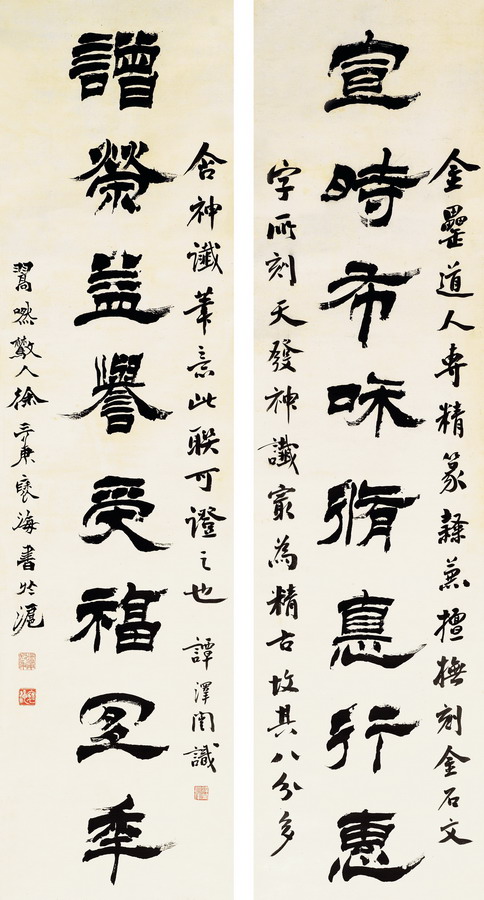 金罍道人專精篆隸兼擅撫刻金石文
宣時布和脩悳行惠
字所刻天發神讖㝡為精古故其八分多
含神讖筆意此聯可證之也 譚澤闓識
譄榮益譽受福多年
翯嘫散人徐三庚褎海書於滬